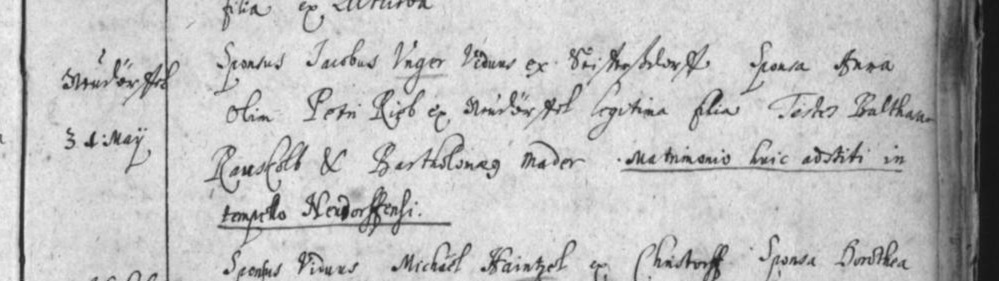 filia ex
Neüdörffel
31. Maÿ
Sponsus Jacobus Unger Viduus ex Sponsa Anna
olim Petri Rieb ex Neüdörffel legitima filia Testes Balthasar
Rauskolb & Bartholomæus Mader. Matrimonio huic adstiti in
templo Neüdorffensi.
Sponsus Viduus Michaël Haintzel ex Sponsa Dorothea